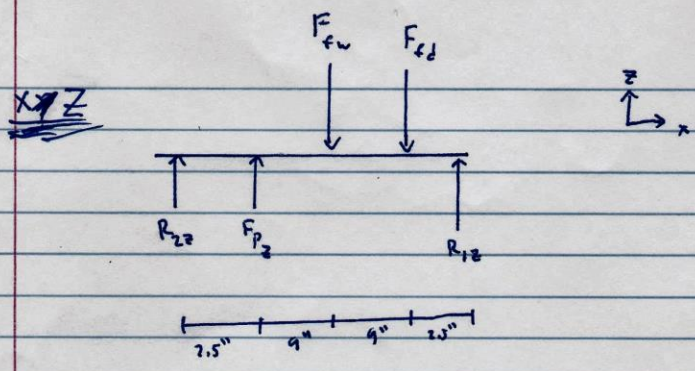 F_fw F_fd
XZ
z
x
R_2z F_Pz R_1z
2.5" 9" 9" 2.5"